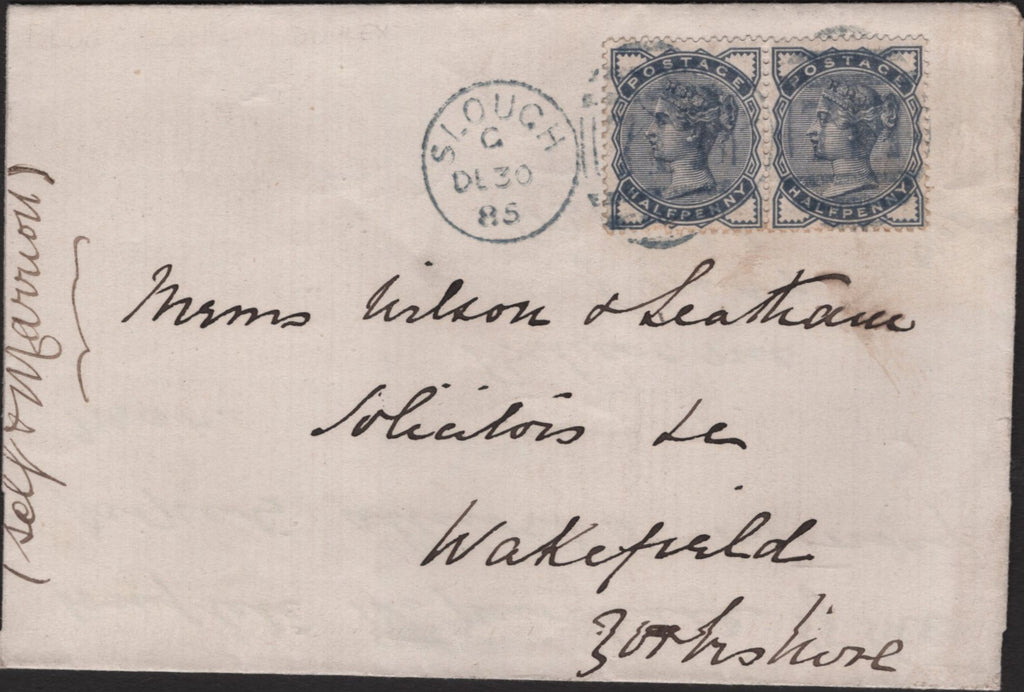 SLOUGH
C
DE 30
85
POSTAGE
HALFPENNY
POSTAGE
HALFPENNY
Messrs Wilson & Leatham
Solicitors &c
Wakefield
Yorkshire
(Self & Marrion)